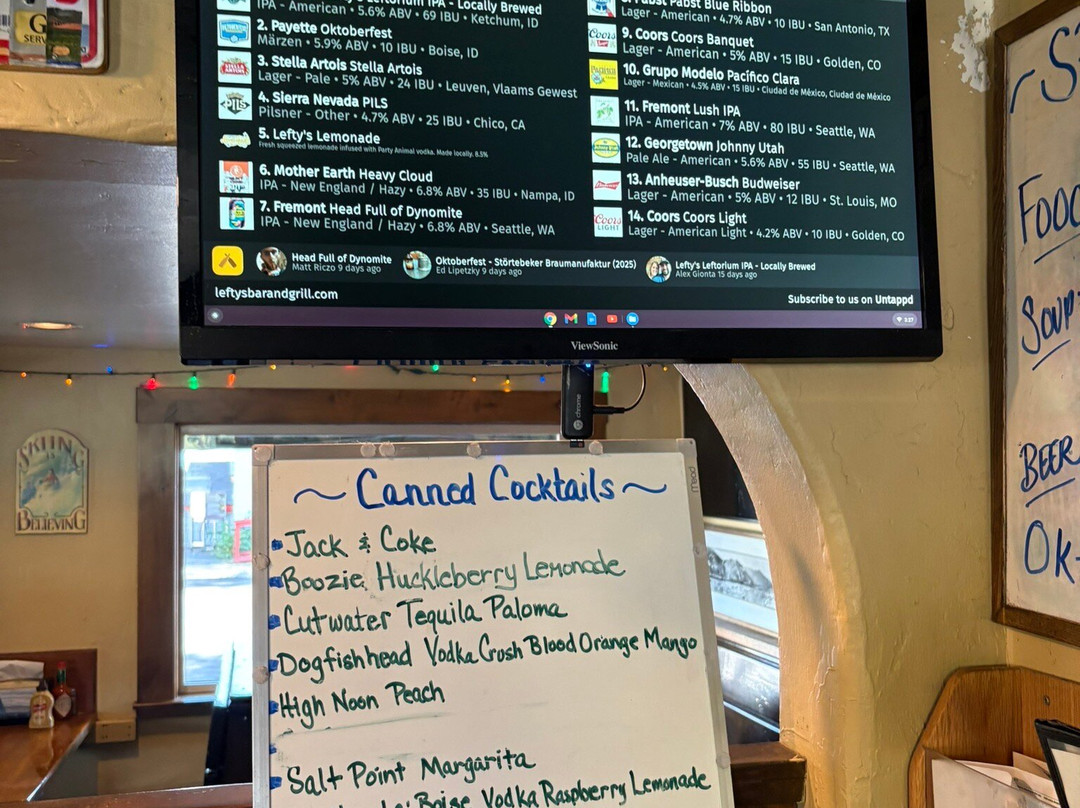 Leftorium IPA - Locally Brewed
IPA - American • 5.6% ABV • 69 IBU • Ketchum, ID
2. Payette Oktoberfest
Märzen • 5.9% ABV • 10 IBU • Boise, ID
3. Stella Artois Stella Artois
Lager - Pale • 5% ABV • 24 IBU • Leuven, Vlaams Gewest
4. Sierra Nevada PILS
Pilsner - Other • 4.7% ABV • 25 IBU • Chico, CA
5. Lefty's Lemonade
Fresh squeezed lemonade infused with Party Animal vodka. Made locally. 8.5%
6. Mother Earth Heavy Cloud
IPA - New England / Hazy • 6.8% ABV • 35 IBU • Nampa, ID
7. Fremont Head Full of Dynomite
IPA - New England / Hazy • 6.8% ABV • Seattle, WA
Pabst Pabst Blue Ribbon
Lager - American • 4.7% ABV • 10 IBU • San Antonio, TX
9. Coors Coors Banquet
Lager - American • 5% ABV • 15 IBU • Golden, CO
10. Grupo Modelo Pacífico Clara
Lager - Mexican • 4.5% ABV • 15 IBU • Ciudad de México, Ciudad de México
11. Fremont Lush IPA
IPA - American • 7% ABV • 80 IBU • Seattle, WA
12. Georgetown Johnny Utah
Pale Ale - American • 5.6% ABV • 55 IBU • Seattle, WA
13. Anheuser-Busch Budweiser
Lager - American • 5% ABV • 12 IBU • St. Louis, MO
14. Coors Coors Light
Lager - American Light • 4.2% ABV • 10 IBU • Golden, CO
Head Full of Dynomite
Matt Riczo 9 days ago
Oktoberfest - Störtebeker Braumanufaktur (2025)
Ed Lipetzky 9 days ago
Lefty's Leftorium IPA - Locally Brewed
Alex Gionta 15 days ago
leftysbarandgrill.com
Subscribe to us on Untappd
3:27
ViewSonic
chrome
SKIING
IS
BELIEVING
mead
~ Canned Cocktails ~
Jack & Coke
Boozie Huckleberry Lemonade
Cutwater Tequila Paloma
Dogfishhead Vodka Crush Blood Orange Mango
High Noon Peach
Salt Point Margarita
Boise Vodka Raspberry Lemonade
~S
Food
Soup
BEER
Ok-